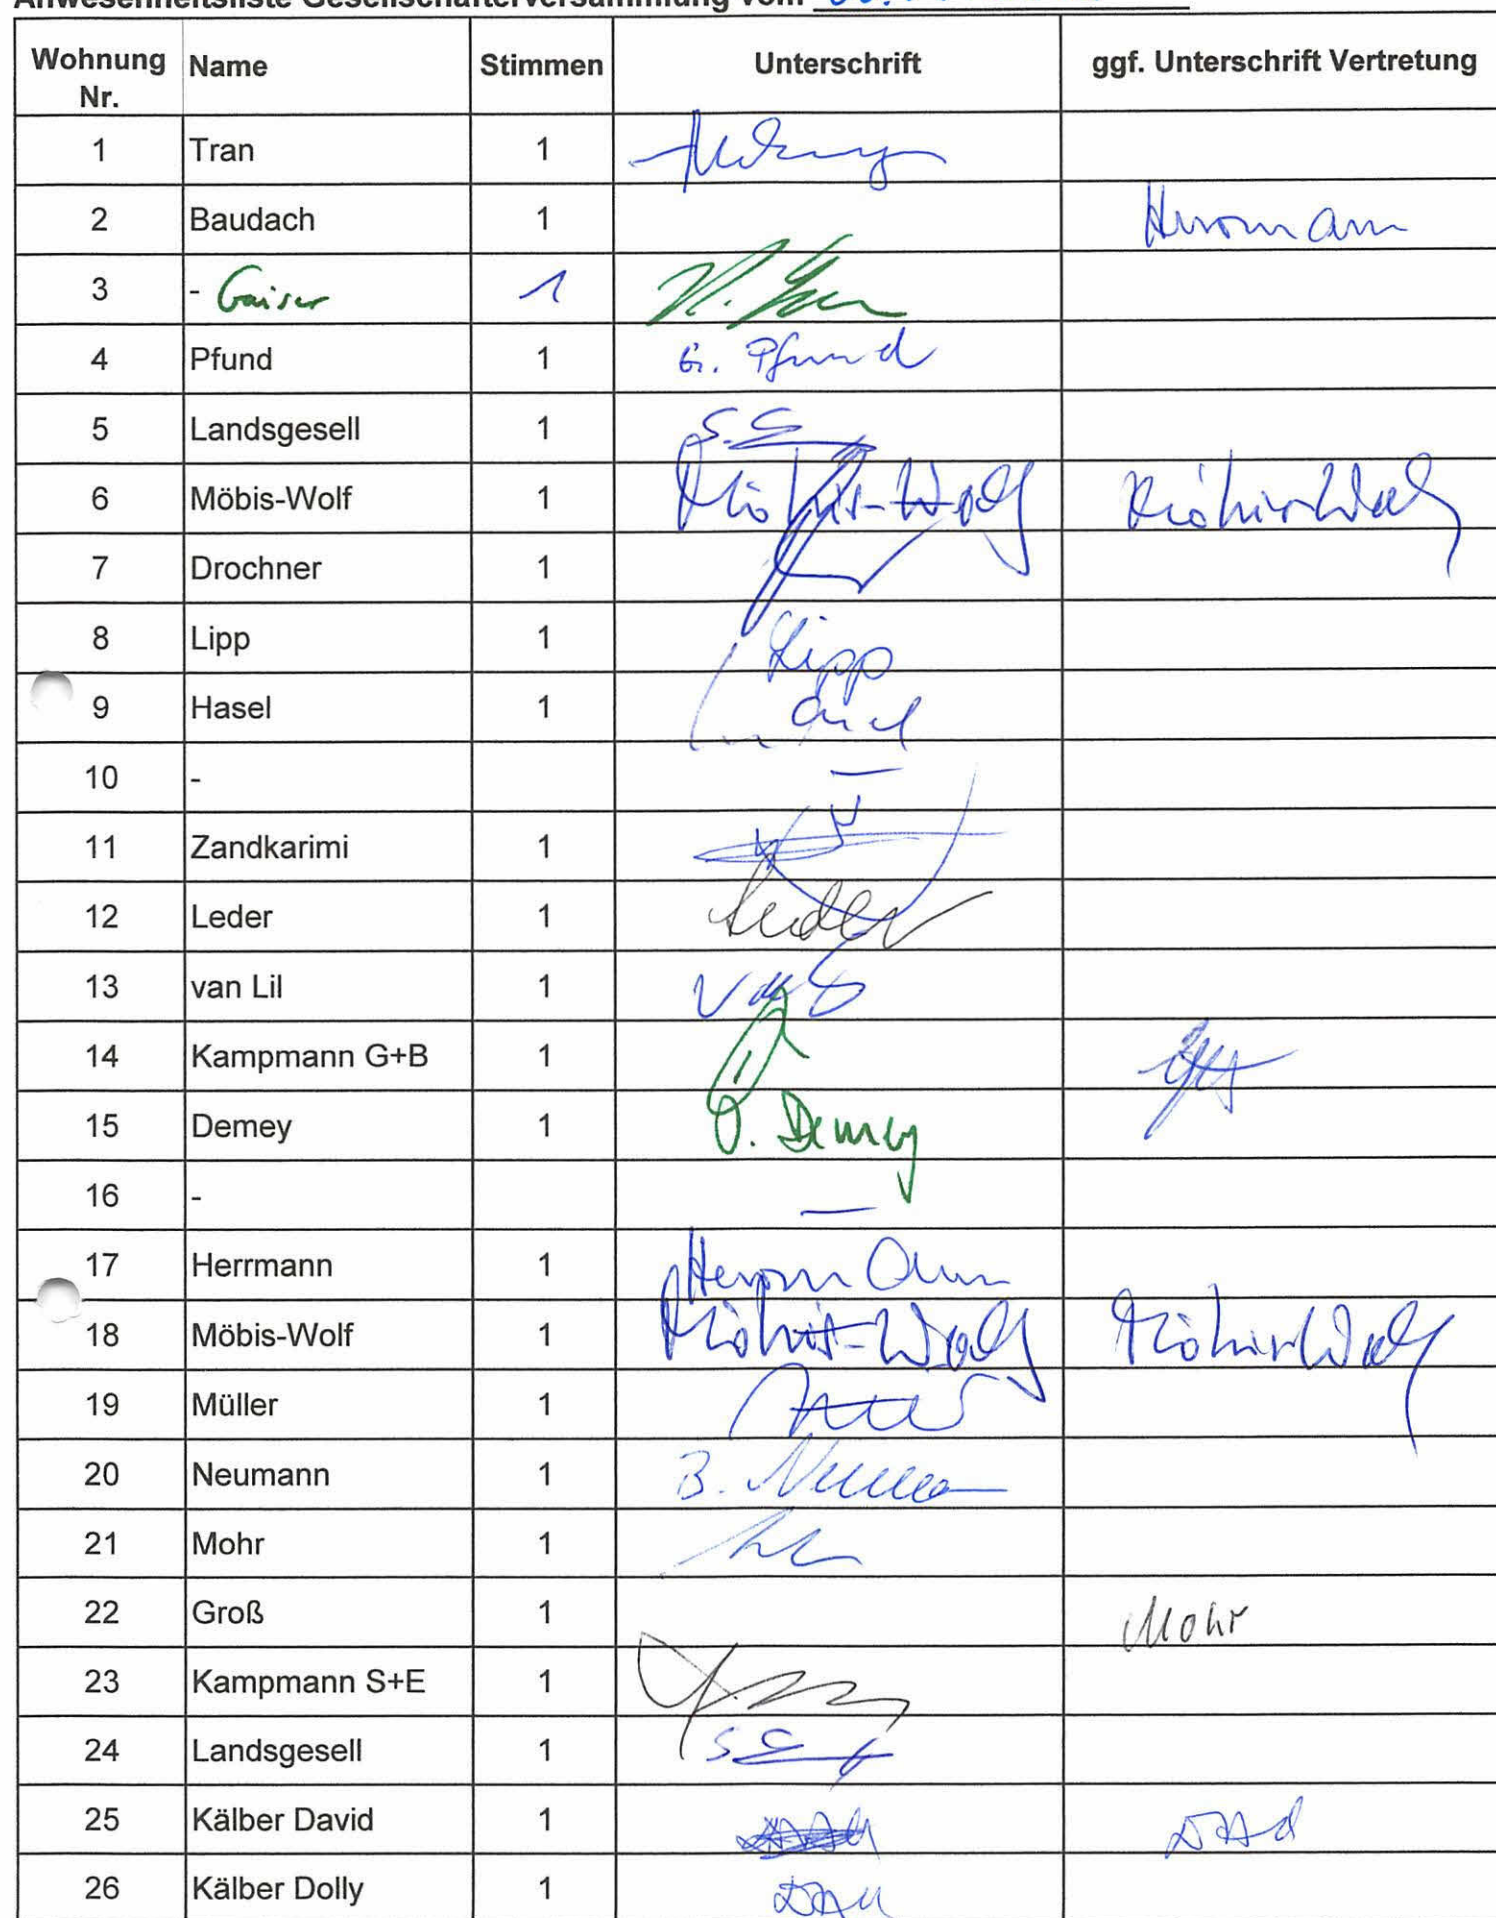 Anwesenheitsliste Gesellschafterversammlung vom
Wohnung Nr. Name Stimmen Unterschrift ggf. Unterschrift Vertretung
1 Tran 1
2 Baudach 1 Herrmann
3 - Gaiser 1
4 Pfund 1 G. Pfund
5 Landsgesell 1
6 Möbis-Wolf 1 Möbis-Wolf Möbis-Wolf
7 Drochner 1
8 Lipp 1 Lipp
9 Hasel 1
10 - —
11 Zandkarimi 1
12 Leder 1 Leder
13 van Lil 1
14 Kampmann G+B 1
15 Demey 1 O. Demey
16 - —
17 Herrmann 1 Herrmann
18 Möbis-Wolf 1 Möbis-Wolf Möbis-Wolf
19 Müller 1
20 Neumann 1 B. Neumann
21 Mohr 1
22 Groß 1 Mohr
23 Kampmann S+E 1
24 Landsgesell 1
25 Kälber David 1
26 Kälber Dolly 1